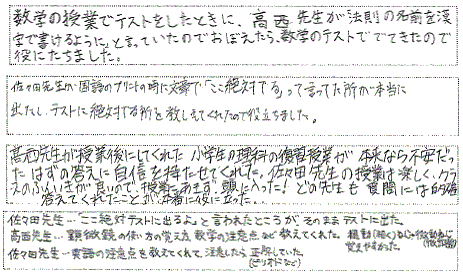 数学の授業でテストをしたときに、高西先生が法則の名前を漢
字で書けるように、と言っていたのでおぼえたら、数学のテストででてきたので
役にたちました。
佐々田先生が国語のプリントの時に文章で「ここ絶対でる」って言ってた所が本当に
出たし、テストに絶対でる所を教えてくれたので役立ちました。
高西先生が授業後にしてくれた小学生の理科の復習授業が本来なら不安だっ
たはずの答えに自信を持たせてくれた。佐々田先生の授業は楽しく、クラ
スのふんいきが良いので、授業にあきず、頭に入った!どの先生も質問には的確
答えてくれたことが本当に役に立った...
佐々田先生…ここ絶対テストに出るよ。と言われたところが、そのままテストに出た。
高西先生…顕微鏡の使い方の覚え方、数学の注意点など教えてくれた。
粗動(粗く)ねじ・微動ねじ
覚えやすかった。
佐々田先生…英語の注意点を教えてくれて、注意したら正解していた。
(ピリオドなど)